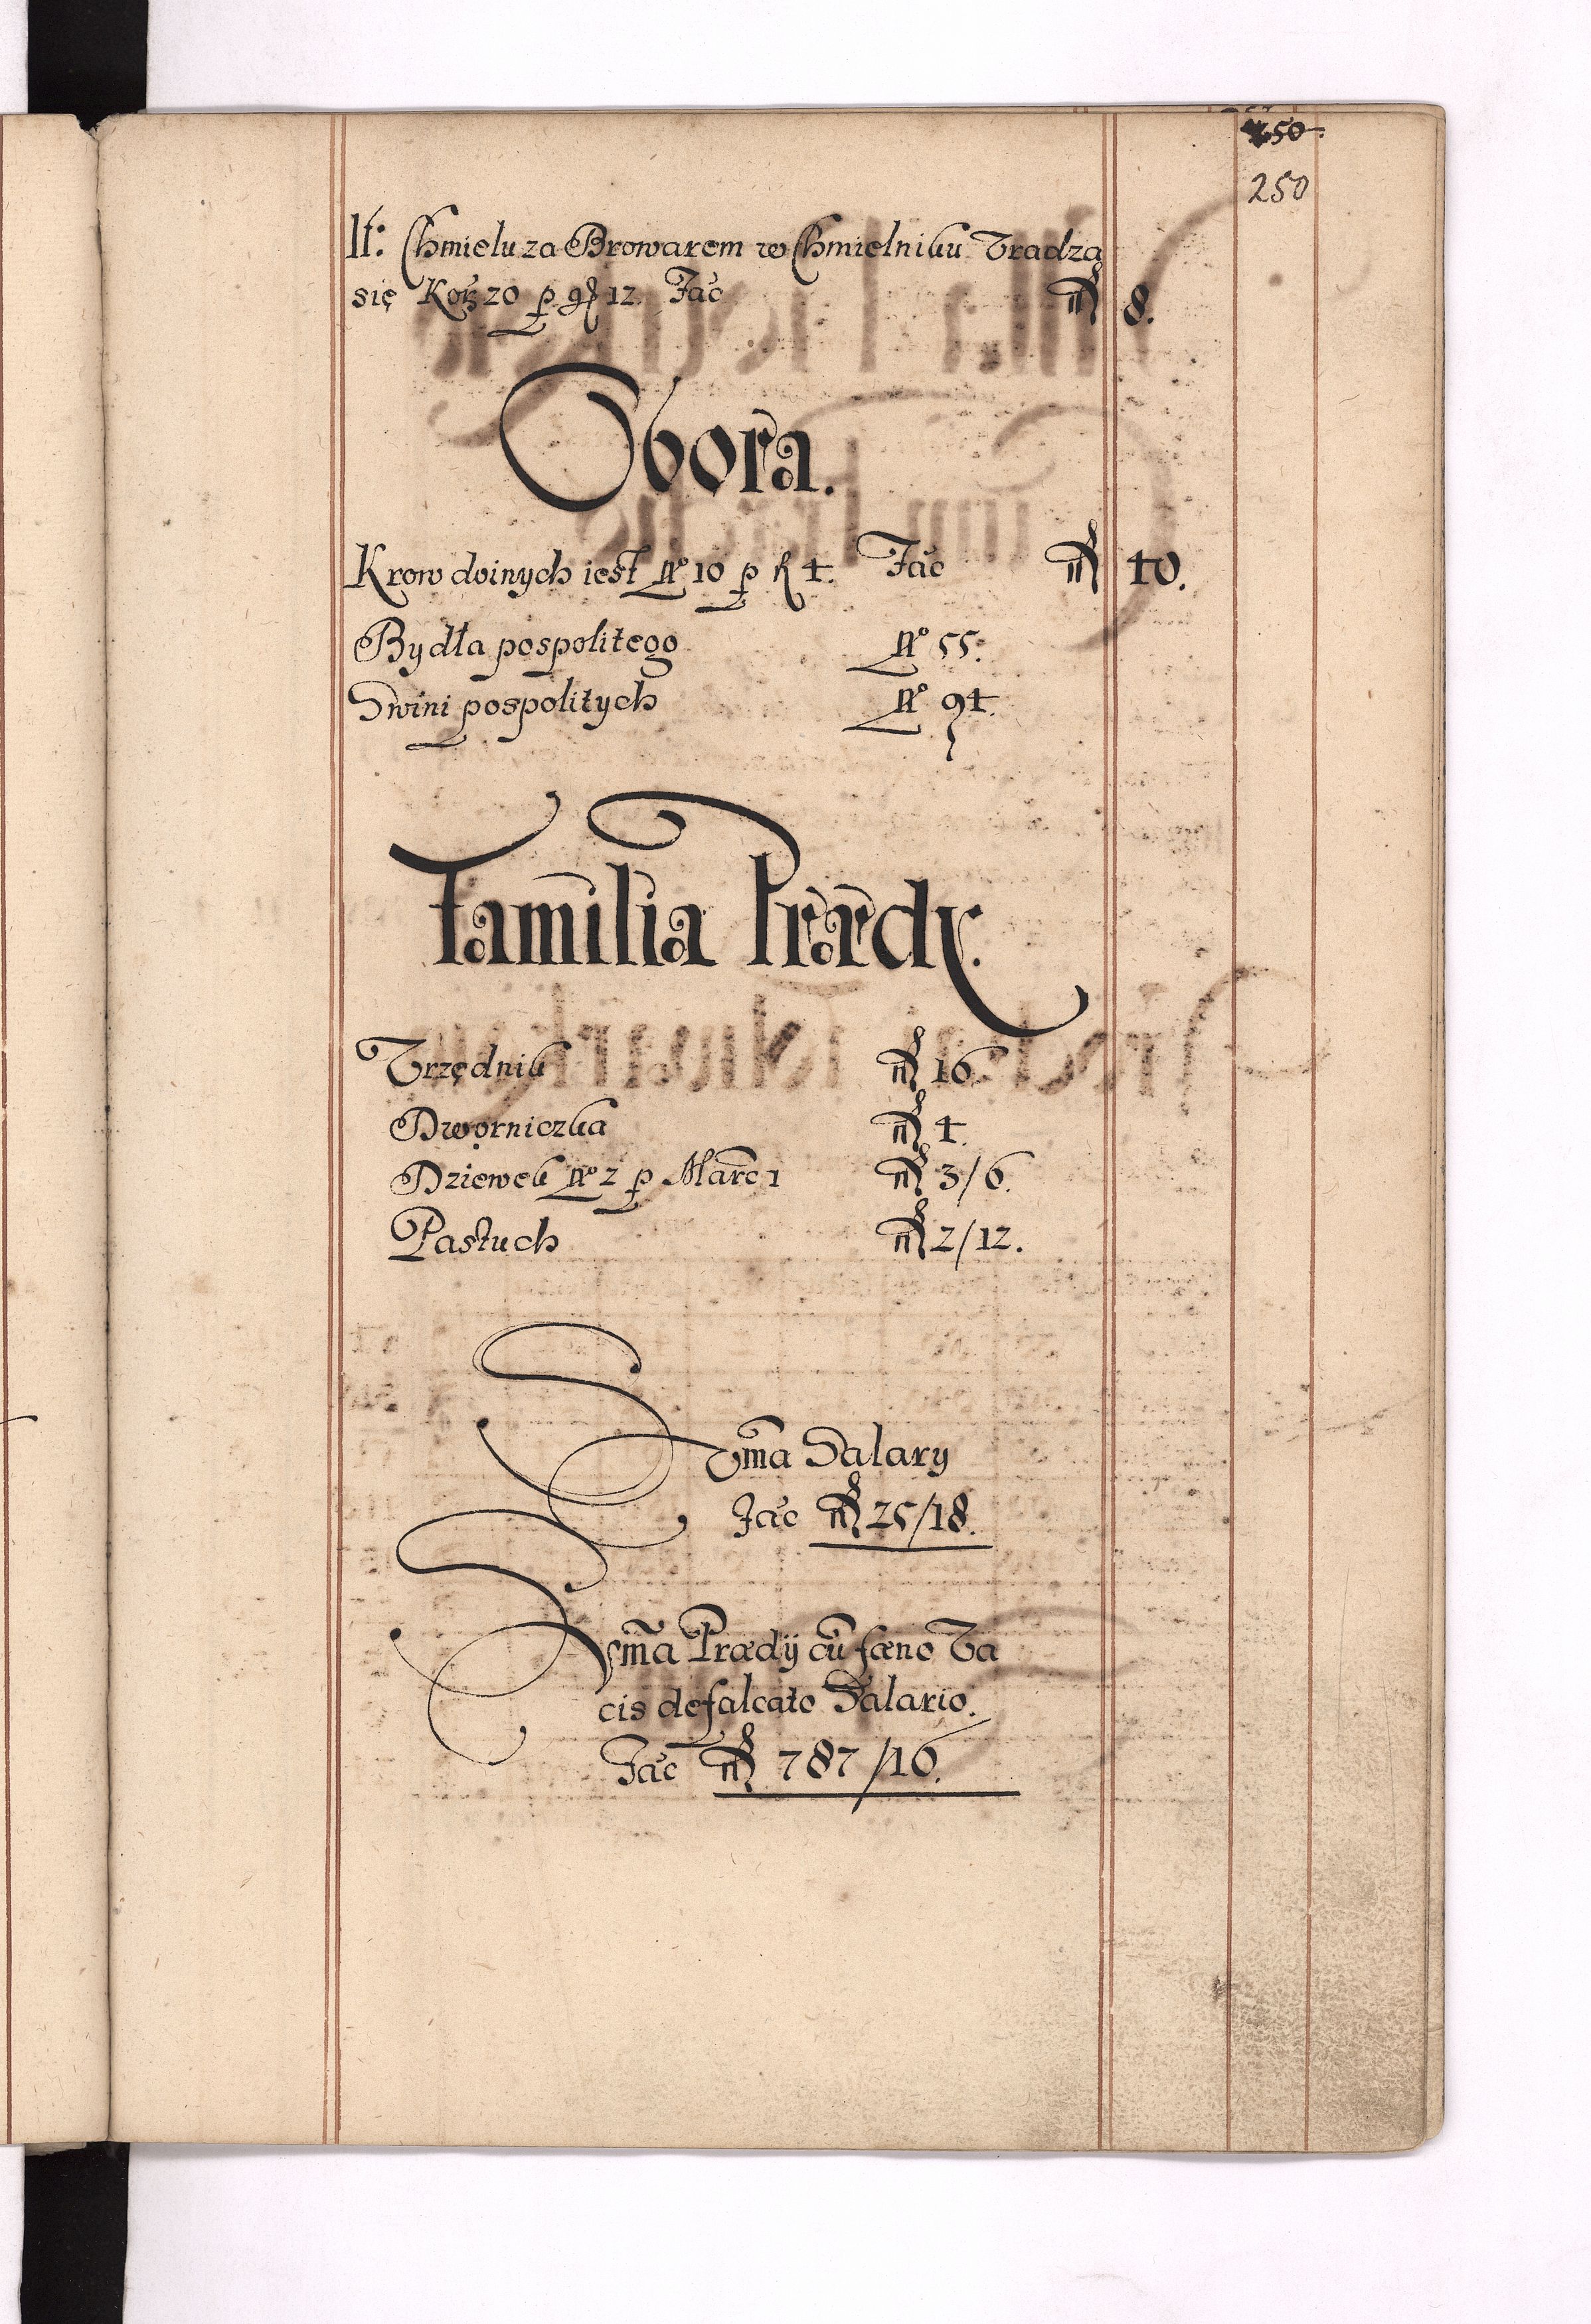 250.
250
It: Chmielu za Browarem w Chmielniku Vradza
się Korz 20 p gr 12. Fac̃ fl 8.
Obora.
Krow doinych iest No 10 p fl 4. Fac̃ fl 40.
Bydła pospolitego No 55.
Swini pospolitych No 94.
Familia Prædy.
Vrzędnik fl 16.
Dworniczka fl 4.
Dziewek No 2 p Marc 1 fl 3/6.
Pastuch fl 2/12.
Sum̃a Salary
Fac̃ fl 25/18.
Sum̃a Prædij cũ fœno Va
cis defalcato Salario.
Fac̃ fl 787/16.